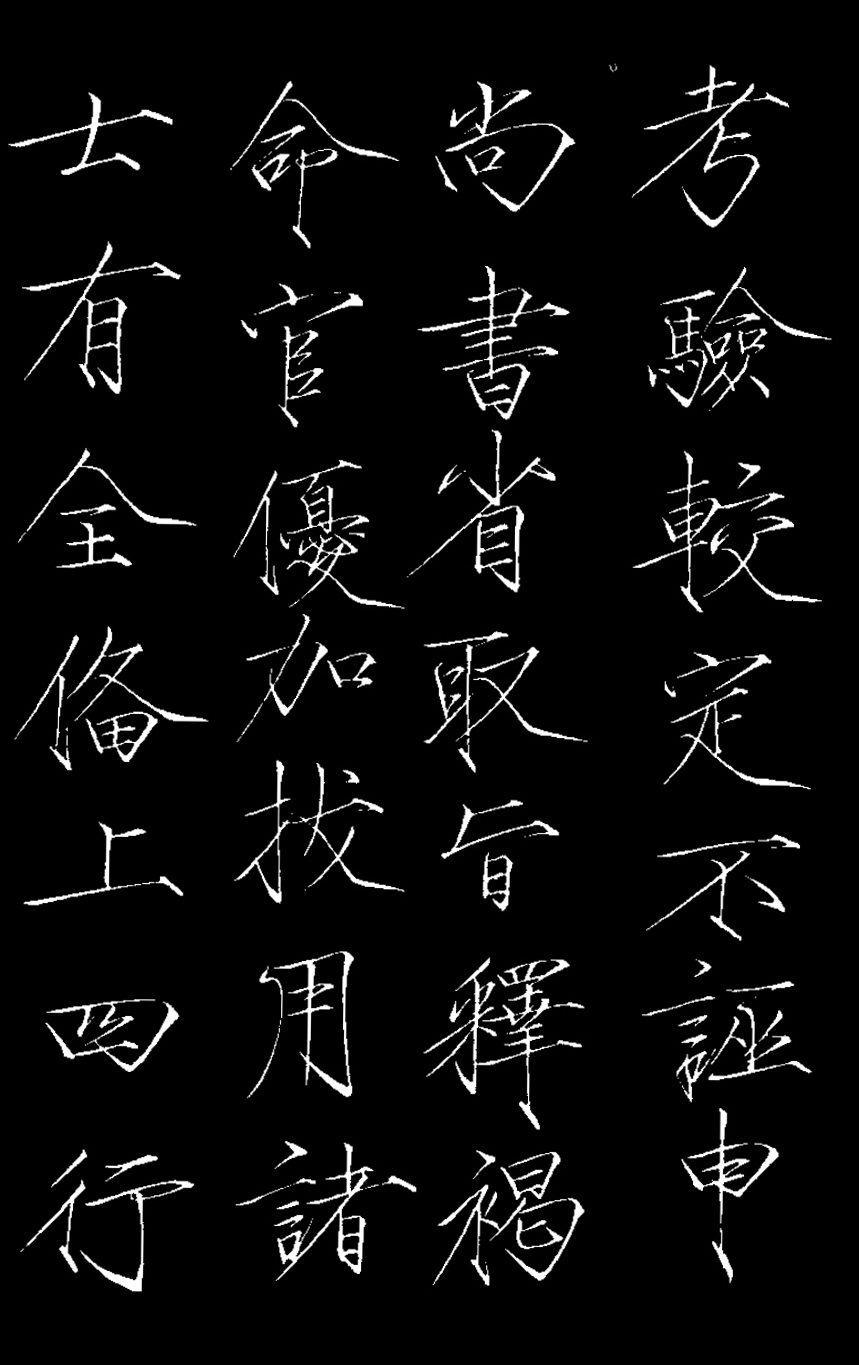 考驗較定不誣申
尚書省取旨釋褐
命官優加拔用諸
士有全備上四行